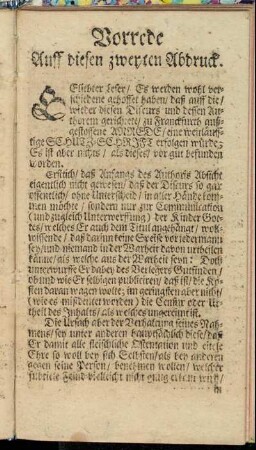 Vorrede
Auff diesen zweyten Abdruck.
GEliebter Leser / Es werden wohl ver-
schiedene gehoffet haben / daß auff die /
wieder diesen Discurs und dessen Au-
thorem gerichtete / zu Franckfurth auß-
gestossene ANREDE / eine weitläuff-
tige SCHUTZ-SCHRIFT erfolgen würde;
Es ist aber nichts / als dieses / vor gut befunden
worden.
Erstlich / daß Anfangs des Authoris Absicht
eigentlich nicht gewesen / daß der Discurs so gar
öffentlich / ohne Unterscheid / in aller Hände kom-
men möchte / sondern nur zur Communication
(und zugleich Unterwerffung) der Kinder Got-
tes / welches Er auch dem Titul angehänget / woh-
wissende / daß das nun keine Speise vor jederman
sey / und niemand in der Warheit davon urtheilen
könne / als welche aus der Warheit seyn: Doch
unterwurffe Er dabey des Verlegers Gutfinden /
ob und wie Er selbigen publiciren / daß ist / die Ko-
sten daran wagen wolte; im geringsten aber nicht /
(wie es mißdeutet worden) die Censur oder Ur-
theil des Inhalts / als welches ungereimt ist.
Die Ursach aber der Verhaltung seines Nah-
mens / sey unter anderen hauptsächlich diese / daß
Er damit alle fleischliche Ostentation und eitele
Ehre so woll bey sich Selbsten / als bey anderen
gegen seine Person / benehmen wollen / welcher
subtiele Feind vielleicht nicht gnug erkent wird /